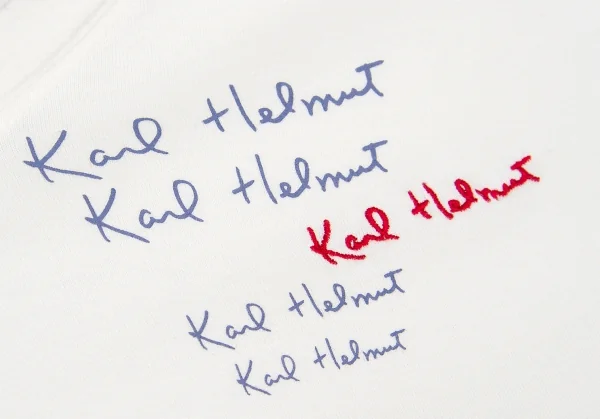 Karl Helmut
Karl Helmut
Karl Helmut
Karl Helmut
Karl Helmut